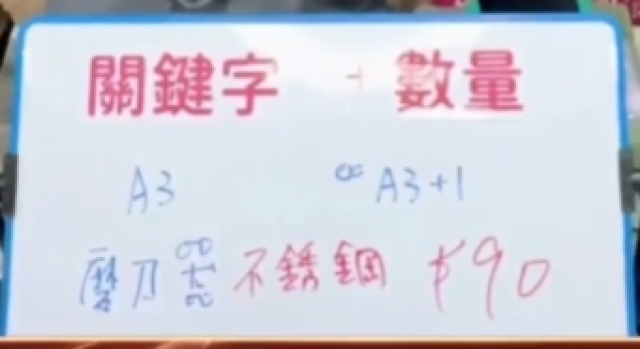 關鍵字 + 數量
A3 ex A3+1
磨刀器 不銹鋼 $90